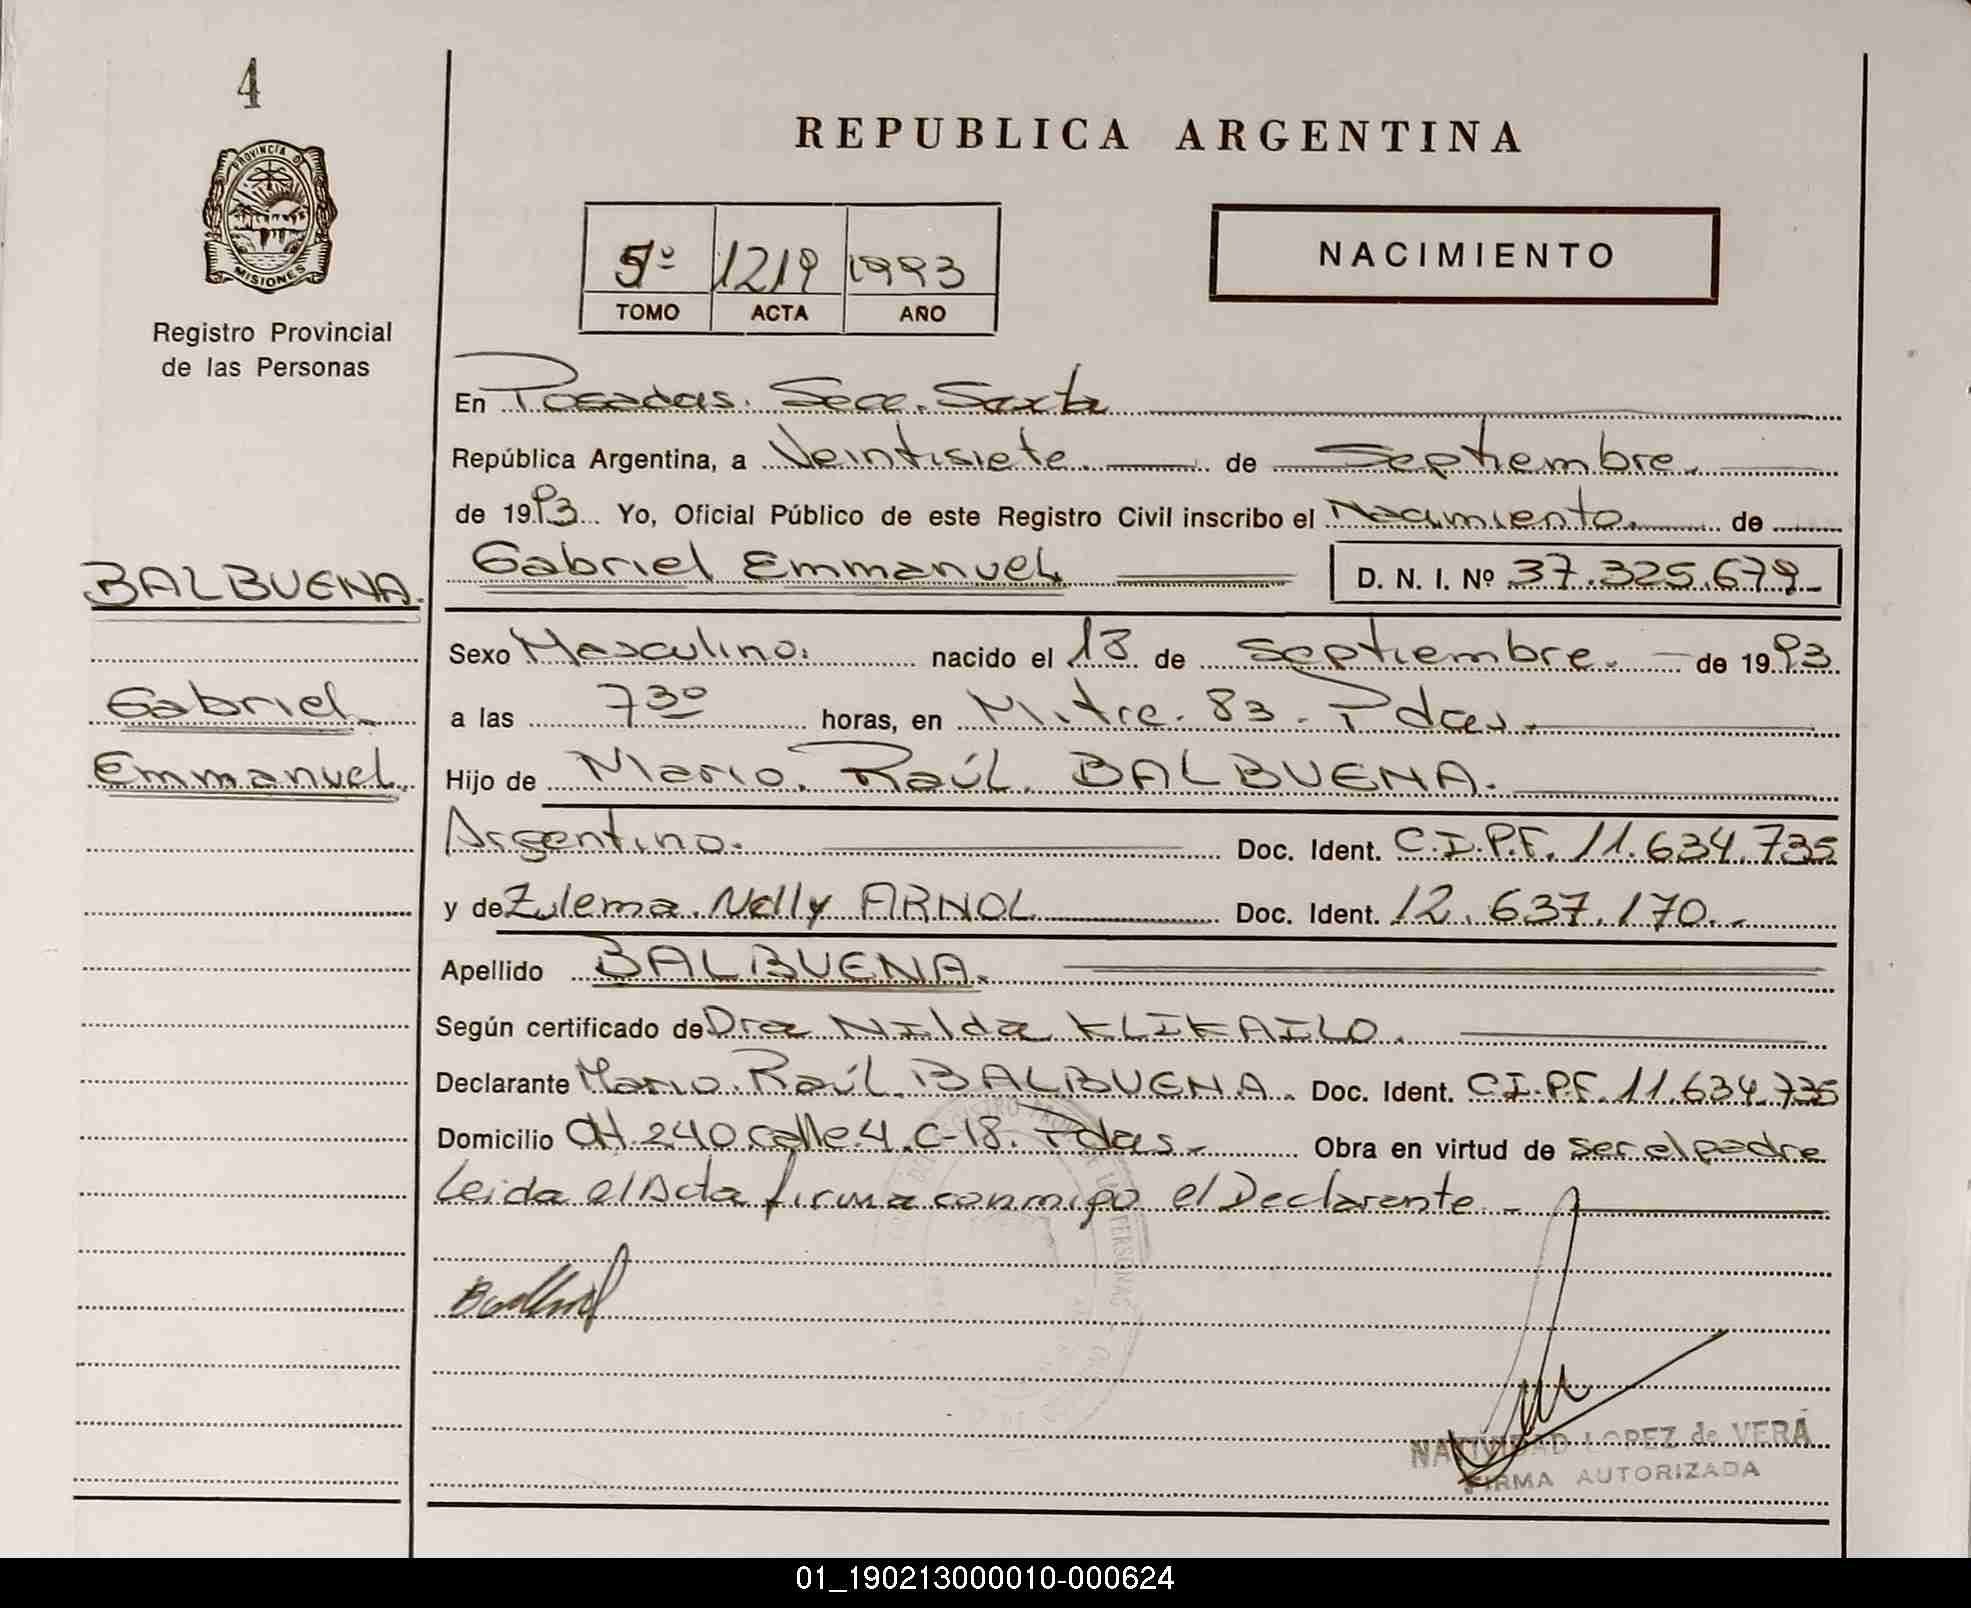 4
PROVINCIA DE
MISIONES
Registro Provincial
de las Personas
REPUBLICA ARGENTINA
5º 1219 1993
TOMO ACTA AÑO
NACIMIENTO
En Posadas. Secc. Sexta
República Argentina, a Veintisiete de Septiembre.
de 1993 Yo, Oficial Público de este Registro Civil inscribo el Nacimiento de
Gabriel Emmanuel D. N. I. Nº 37.325.679
BALBUENA.
Gabriel
Emmanuel.
Sexo Masculino. nacido el 13 de Septiembre. de 1993
a las 7 30 horas, en Mitre. 83. Pdas.
Hijo de Mario. Raúl. BALBUENA.
Argentino. Doc. Ident. C.I.P.F. 11.634.735
y de Zulema. Nelly ARNOL Doc. Ident. 12.637.170.
Apellido BALBUENA.
Según certificado de Dra Nilda KLIKAILO.
Declarante Mario. Raúl. BALBUENA. Doc. Ident. C.I.P.F. 11.634.735
Domicilio CH. 240 calle. 4. C-18. Pdas. Obra en virtud de ser el padre
Leida el Acta firma conmigo el Declarante
NATIVIDAD LOPEZ de VERA
FIRMA AUTORIZADA
01_190213000010-000624